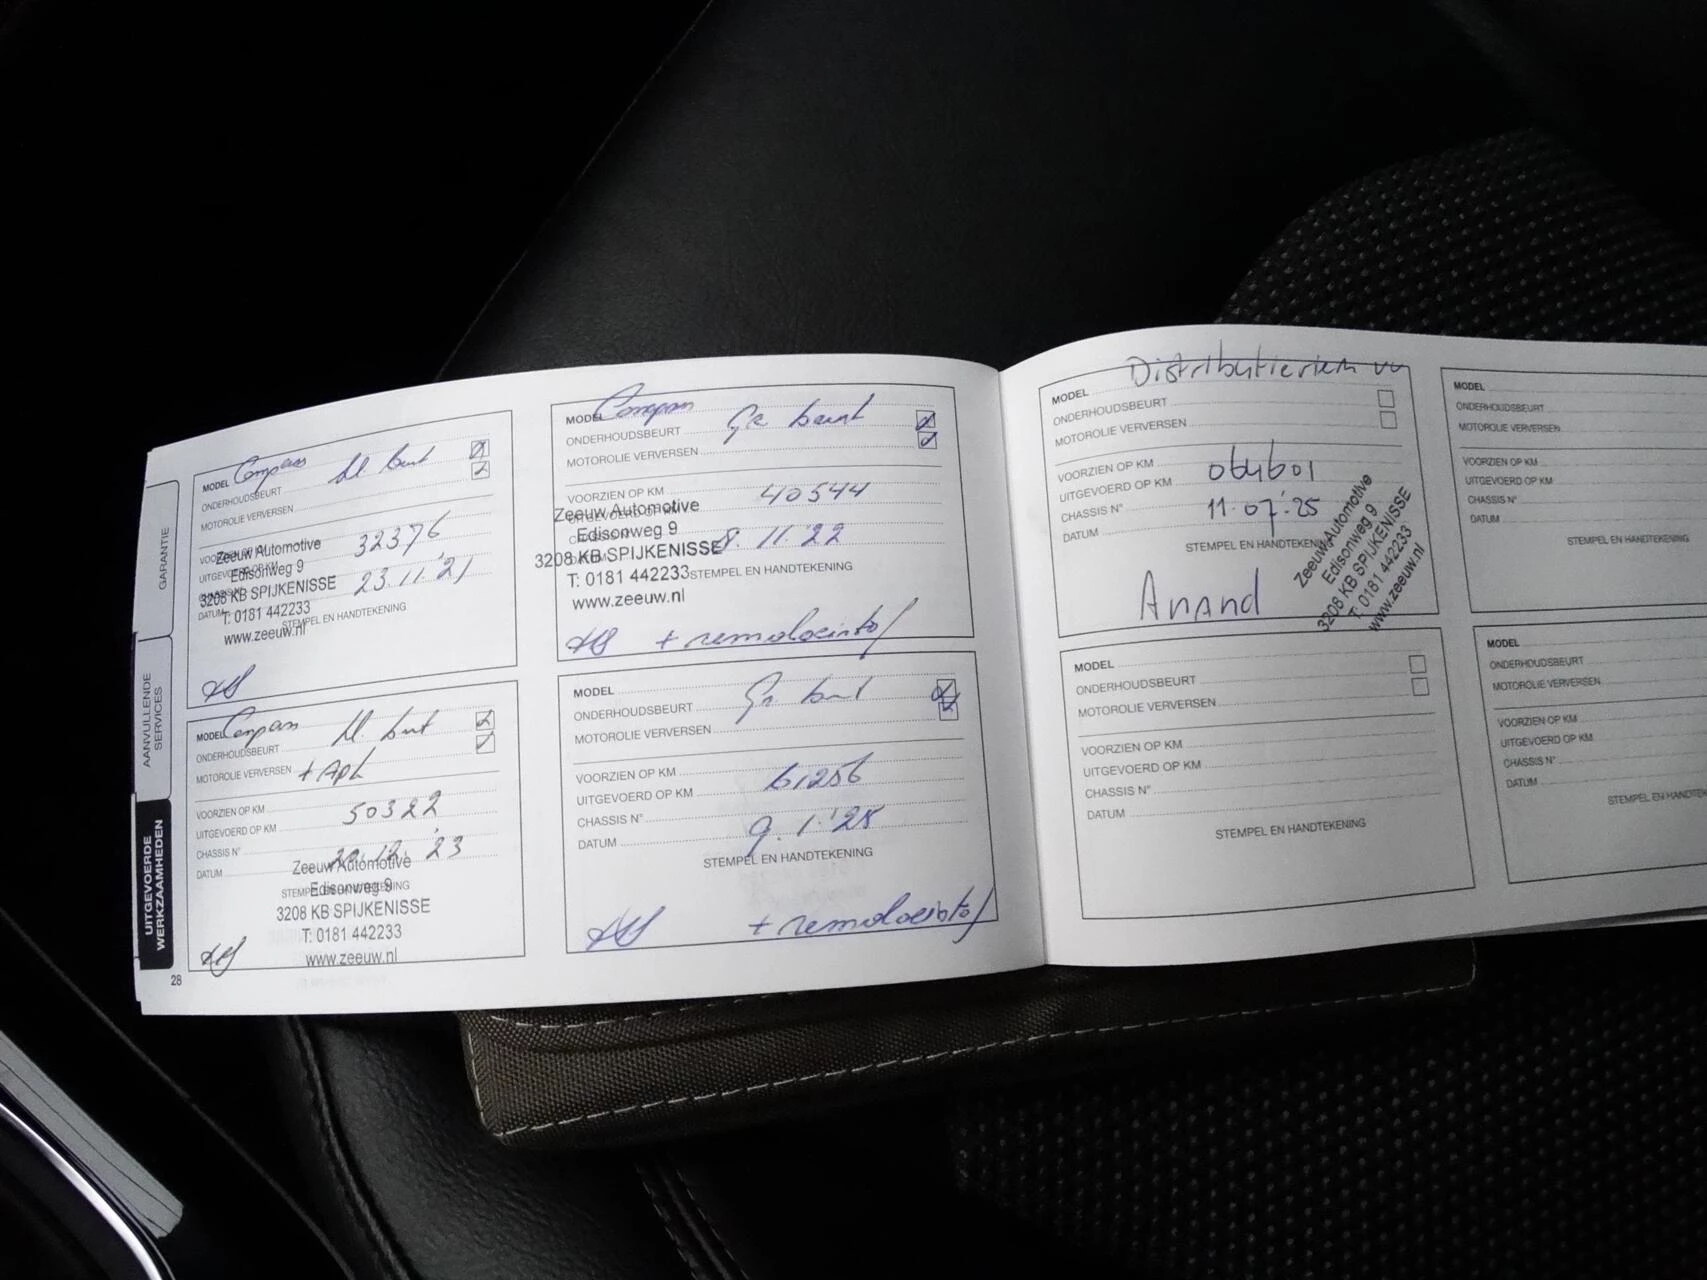 GARANTIE
AANVULLENDE
SERVICES
UITGEVOERDE
WERKZAAMHEDEN
28
MODEL Compass
ONDERHOUDSBEURT Kl. beurt
MOTOROLIE VERVERSEN
VOORZIEN OP KM
UITGEVOERD OP KM 32376
CHASSIS N°
DATUM 23.11.'21
STEMPEL EN HANDTEKENING
Zeeuw Automotive
Edisonweg 9
3208 KB SPIJKENISSE
T: 0181 442233
www.zeeuw.nl
MODEL Compass
ONDERHOUDSBEURT Kl. beurt
MOTOROLIE VERVERSEN + APK
VOORZIEN OP KM
UITGEVOERD OP KM 50322
CHASSIS N°
DATUM 12.'23
STEMPEL EN HANDTEKENING
Zeeuw Automotive
Edisonweg 9
3208 KB SPIJKENISSE
T: 0181 442233
www.zeeuw.nl
MODEL Compass
ONDERHOUDSBEURT Gr beurt
MOTOROLIE VERVERSEN
VOORZIEN OP KM
UITGEVOERD OP KM 40544
DATUM 8.11.'22
STEMPEL EN HANDTEKENING
Zeeuw Automotive
Edisonweg 9
3208 KB SPIJKENISSE
T: 0181 442233
www.zeeuw.nl
+ remvloeistof
MODEL
ONDERHOUDSBEURT Gr. beurt
MOTOROLIE VERVERSEN
VOORZIEN OP KM
UITGEVOERD OP KM 61256
CHASSIS N°
DATUM 9.1.'25
STEMPEL EN HANDTEKENING
+ remvloeistof
MODEL Distributieriem vv
ONDERHOUDSBEURT
MOTOROLIE VERVERSEN
VOORZIEN OP KM
UITGEVOERD OP KM 064601
CHASSIS N°
DATUM 11.07.'25
STEMPEL EN HANDTEKENING
Anand
Zeeuw Automotive
Edisonweg 9
3208 KB SPIJKENISSE
T: 0181 442233
www.zeeuw.nl
MODEL
ONDERHOUDSBEURT
MOTOROLIE VERVERSEN
VOORZIEN OP KM
UITGEVOERD OP KM
CHASSIS N°
DATUM
STEMPEL EN HANDTEKENING
MODEL
ONDERHOUDSBEURT
MOTOROLIE VERVERSEN
VOORZIEN OP KM
UITGEVOERD OP KM
CHASSIS N°
DATUM
STEMPEL EN HANDTEKENING
MODEL
ONDERHOUDSBEURT
MOTOROLIE VERVERSEN
VOORZIEN OP KM
UITGEVOERD OP KM
CHASSIS N°
DATUM
STEMPEL EN HANDTEK